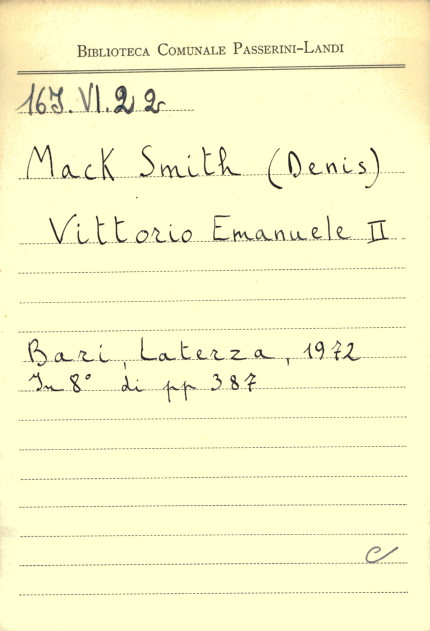 BIBLIOTECA COMUNALE PASSERINI-LANDI
16J.VI.22
Mack Smith (Denis)
Vittorio Emanuele II
Bari, Laterza, 1972
In 8° di pp 387
C